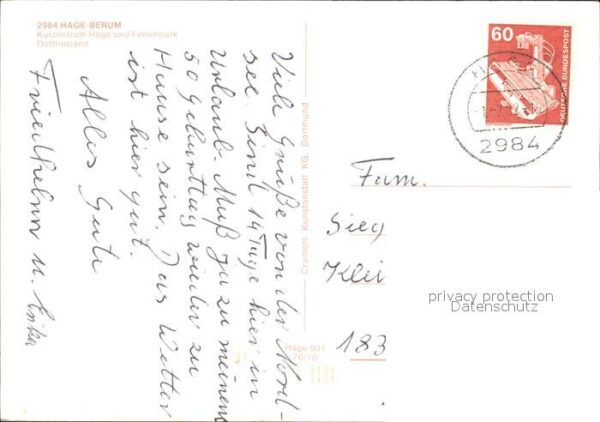 2984 HAGE-BERUM
Kurzentrum Hage und Ferienpark
Ostfriesland
Viele Grüße von der Nord-
see. Sind 14 Tage hier in
Urlaub. Muß ja zu meinem
50 Geburttag wieder zu
Hause sein. Das Wetter
ist hier gut.
Alles Gute
Friedhelm u. Erika
Cramers Kunstanstalt KG, Dortmund
Hage 501
76/10
60
DEUTSCHE BUNDESPOST
2984
Fam.
Sieg
Klei
183
privacy protection
Datenschutz